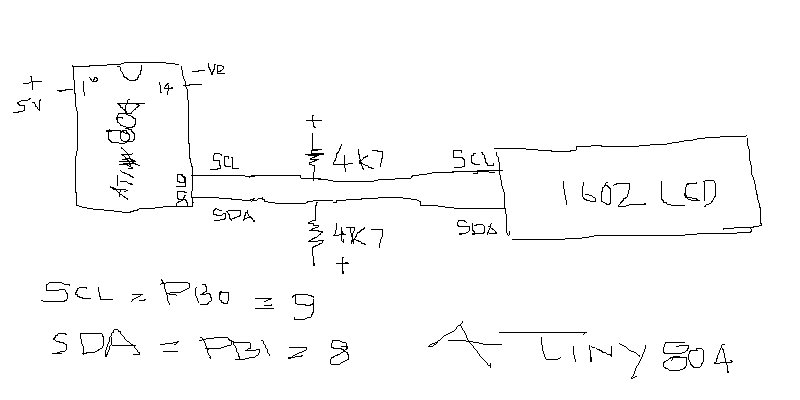 +
5V
1
14
-VE
ATtiny 804
SCL
SDA
+
4K7
4K7
+
SCL
SDA
1602 LCD
SCL = PB0 = 9
SDA = PB1 = 8
ATTINY 804